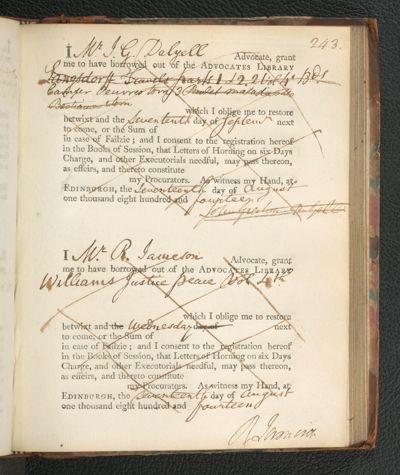 243.
I Mr J. G. Dalyell Advocate, grant
me to have borrowed out of the ADVOCATES LIBRARY
Langsdorff Travels parts 1 & 2, 2 Vols 4to Bds
Camper Oeuvres tom 3
which I oblige me to restore
betwixt and the Seventeenth day of Septemr next
to come, or the Sum of
in case of Failzie; and I consent to the registration hereof
in the Books of Session, that Letters of Horning on six Days
Charge, and other Executorials needful, may pass thereon,
as effeirs, and thereto constitute
my Procurators. As witness my Hand, at
EDINBURGH, the Seventeenth day of August
one thousand eight hundred and fourteen
John Graham Dalyell
I Mr R. Jameson Advocate, grant
me to have borrowed out of the ADVOCATES LIBRARY
Williams Justice peace Vol 4th
which I oblige me to restore
betwixt and the Wednesday day of next
to come, or the Sum of
in case of Failzie; and I consent to the registration hereof
in the Books of Session, that Letters of Horning on six Days
Charge, and other Executorials needful, may pass thereon,
as effeirs, and thereto constitute
my Procurators. As witness my Hand, at
EDINBURGH, the Seventeenth day of August
one thousand eight hundred and fourteen
R Jameson